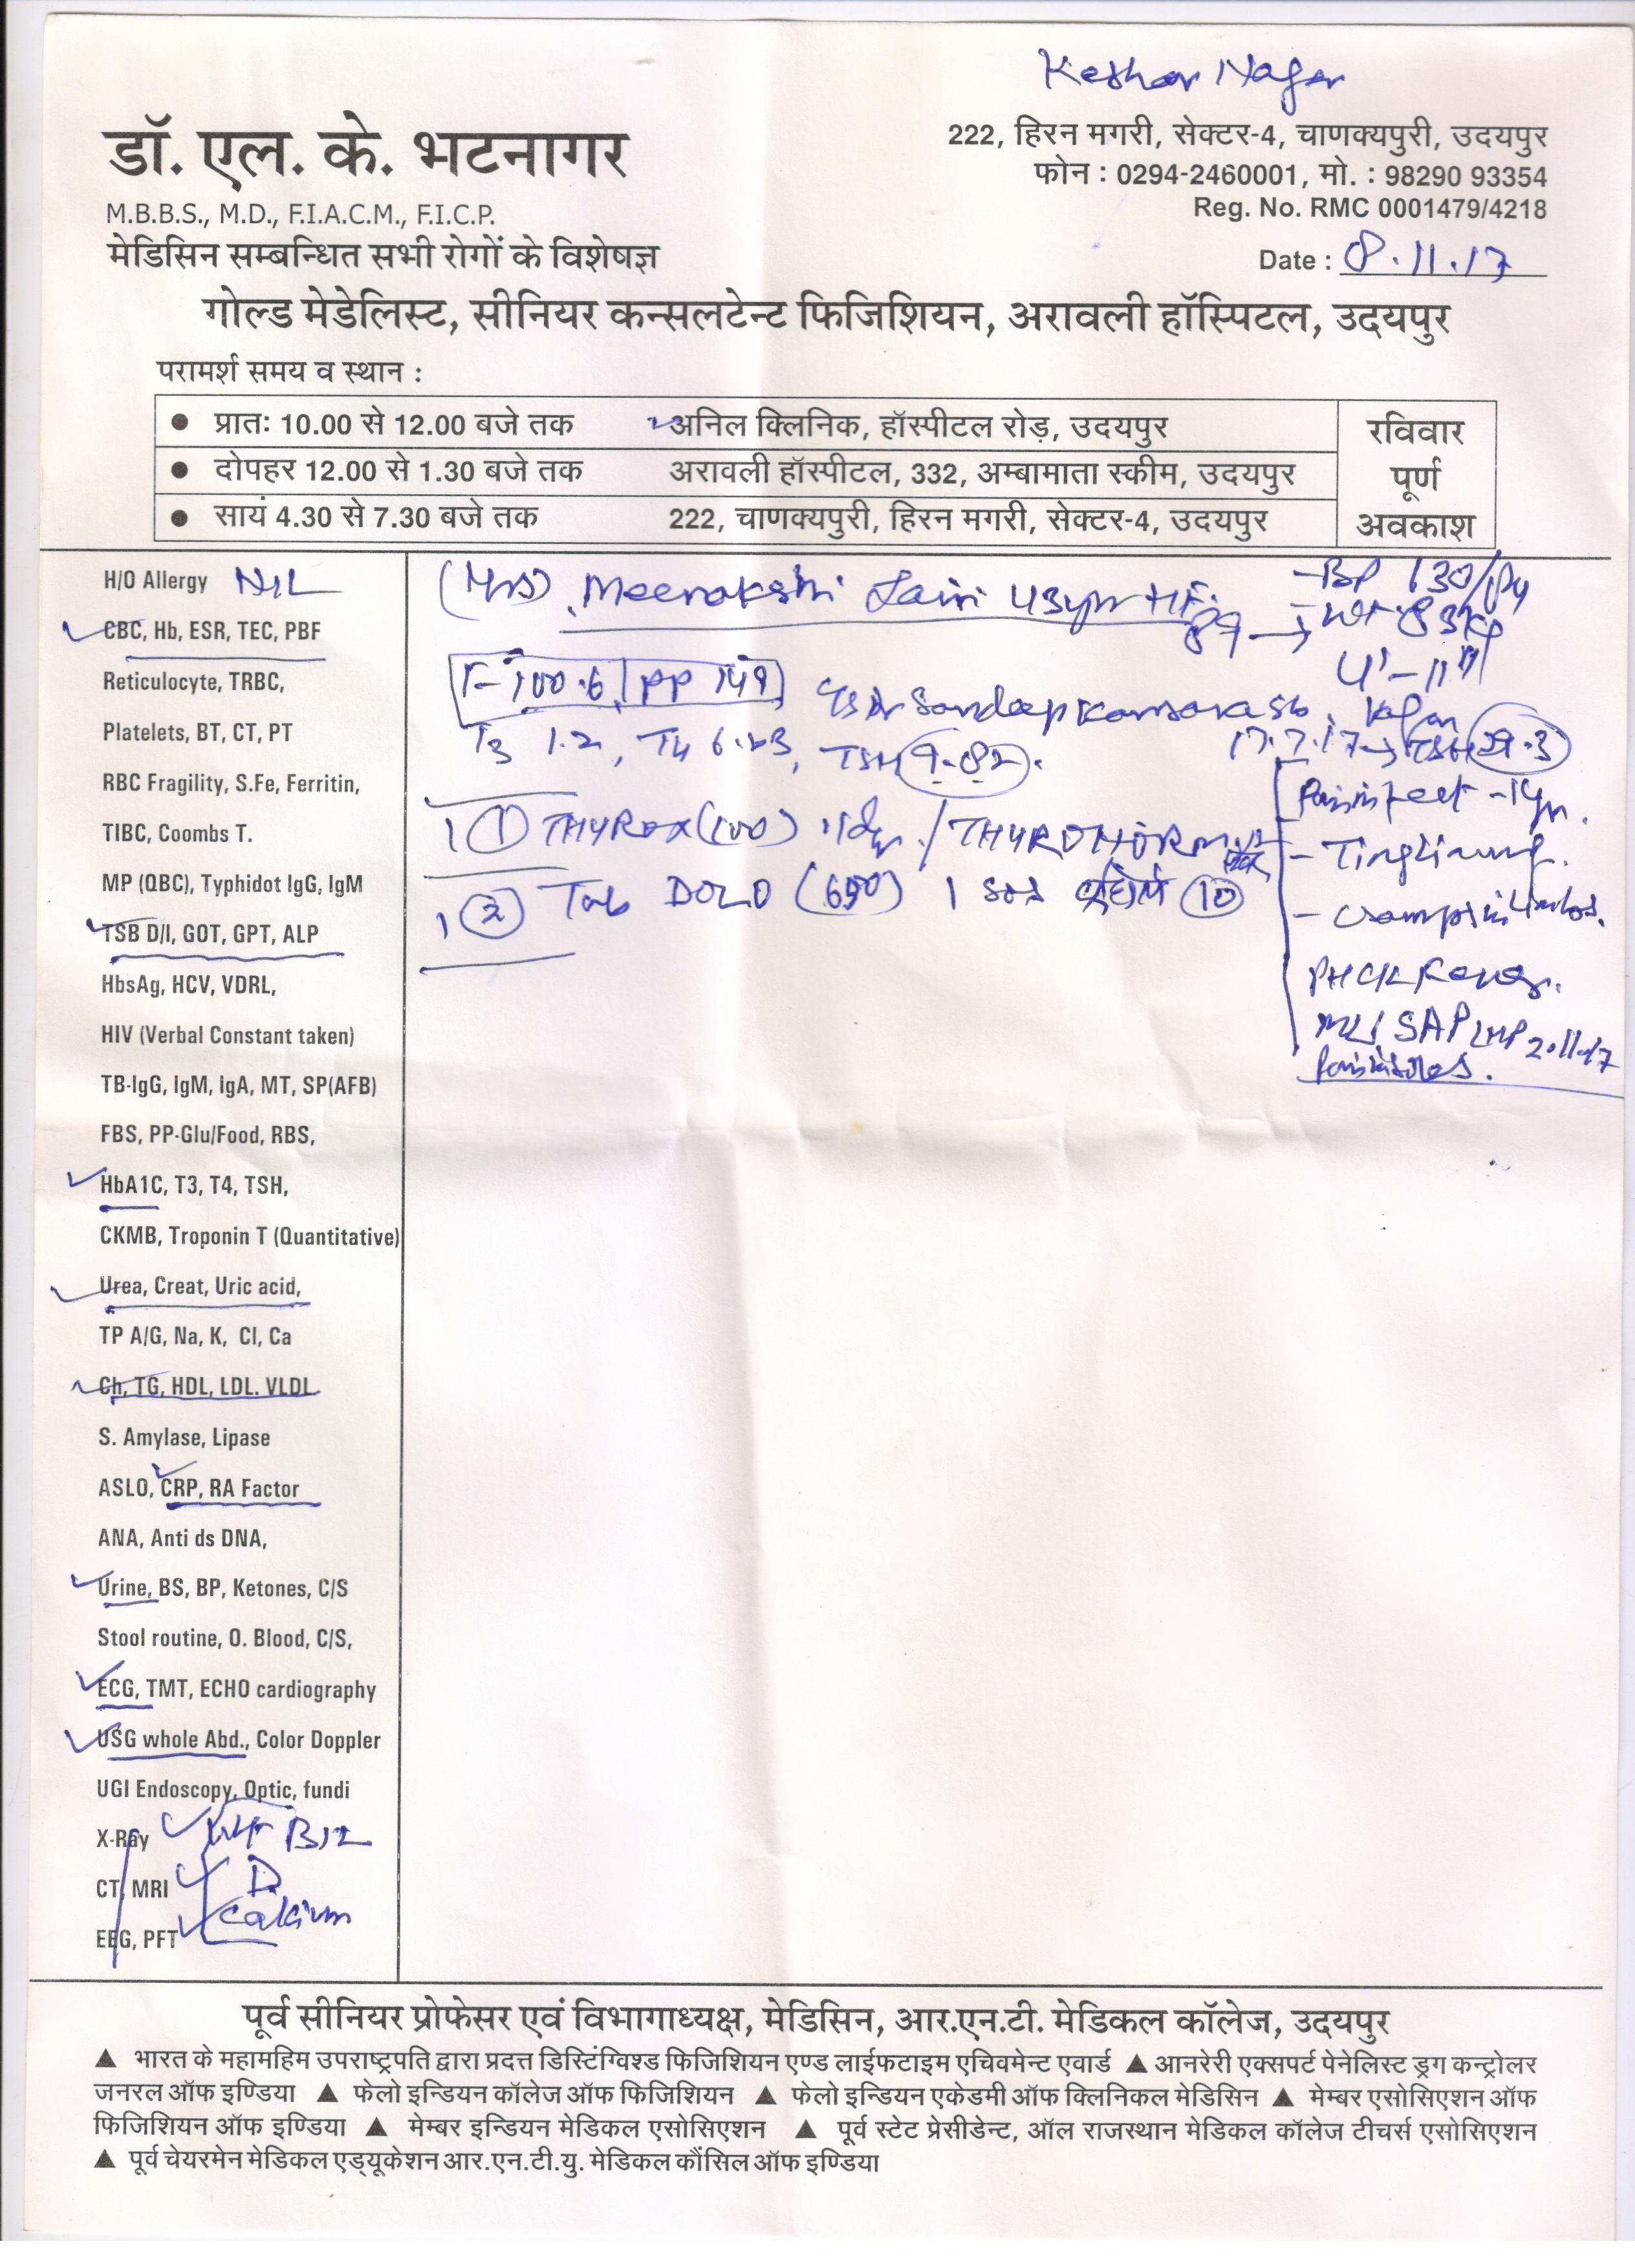 Keshar Nagar
डॉ. एल. के. भटनागर
M.B.B.S., M.D., F.I.A.C.M., F.I.C.P.
मेडिसिन सम्बन्धित सभी रोगों के विशेषज्ञ
222, हिरन मगरी, सेक्टर-4, चाणक्यपुरी, उदयपुर
फोन : 0294-2460001, मो. : 98290 93354
Reg. No. RMC 0001479/4218
Date : 8.11.17
गोल्ड मेडेलिस्ट, सीनियर कन्सलटेन्ट फिजिशियन, अरावली हॉस्पिटल, उदयपुर
परामर्श समय व स्थान :
● प्रातः 10.00 से 12.00 बजे तक अनिल क्लिनिक, हॉस्पीटल रोड़, उदयपुर
● दोपहर 12.00 से 1.30 बजे तक अरावली हॉस्पीटल, 332, अम्बामाता स्कीम, उदयपुर
● सायं 4.30 से 7.30 बजे तक 222, चाणक्यपुरी, हिरन मगरी, सेक्टर-4, उदयपुर
रविवार
पूर्ण
अवकाश
H/O Allergy NIL
CBC, Hb, ESR, TEC, PBF
Reticulocyte, TRBC,
Platelets, BT, CT, PT
RBC Fragility, S.Fe, Ferritin,
TIBC, Coombs T.
MP (QBC), Typhidot IgG, IgM
TSB D/I, GOT, GPT, ALP
HbsAg, HCV, VDRL,
HIV (Verbal Constant taken)
TB-IgG, IgM, IgA, MT, SP(AFB)
FBS, PP-Glu/Food, RBS,
HbA1C, T3, T4, TSH,
CKMB, Troponin T (Quantitative)
Urea, Creat, Uric acid,
TP A/G, Na, K, Cl, Ca
Ch, TG, HDL, LDL. VLDL
S. Amylase, Lipase
ASLO, CRP, RA Factor
ANA, Anti ds DNA,
Urine, BS, BP, Ketones, C/S
Stool routine, O. Blood, C/S,
ECG, TMT, ECHO cardiography
USG whole Abd., Color Doppler
UGI Endoscopy, Optic, fundi
X-Ray B12
CT, MRI D
EEG, PFT Calcium
(Mrs) Meenakshi Jain 43yr
F-100.6 PP 149
T3 1.2, T4 6.23, TSH 9.82.
① THYROX (100) 1 / THYRONORM
② Tab DOLO (650) 1 SOS ⑩
BP 130/84
89 → Wt 83 kg
4'-11"
17.7.17 → TSH 29.3
Pain in feet - 1yr.
- Tingling.
- Cramps in limbs.
LMP 2.11.17
पूर्व सीनियर प्रोफेसर एवं विभागाध्यक्ष, मेडिसिन, आर.एन.टी. मेडिकल कॉलेज, उदयपुर
▲ भारत के महामहिम उपराष्ट्रपति द्वारा प्रदत्त डिस्टिंग्विश्ड फिजिशियन एण्ड लाईफटाइम एचिवमेन्ट एवार्ड ▲ आनरेरी एक्सपर्ट पेनेलिस्ट ड्रग कन्ट्रोलर
जनरल ऑफ इण्डिया ▲ फेलो इन्डियन कॉलेज ऑफ फिजिशियन ▲ फेलो इन्डियन एकेडमी ऑफ क्लिनिकल मेडिसिन ▲ मेम्बर एसोसिएशन ऑफ
फिजिशियन ऑफ इण्डिया ▲ मेम्बर इन्डियन मेडिकल एसोसिएशन ▲ पूर्व स्टेट प्रेसीडेन्ट, ऑल राजस्थान मेडिकल कॉलेज टीचर्स एसोसिएशन
▲ पूर्व चेयरमेन मेडिकल एड्यूकेशन आर.एन.टी.यु. मेडिकल कौंसिल ऑफ इण्डिया